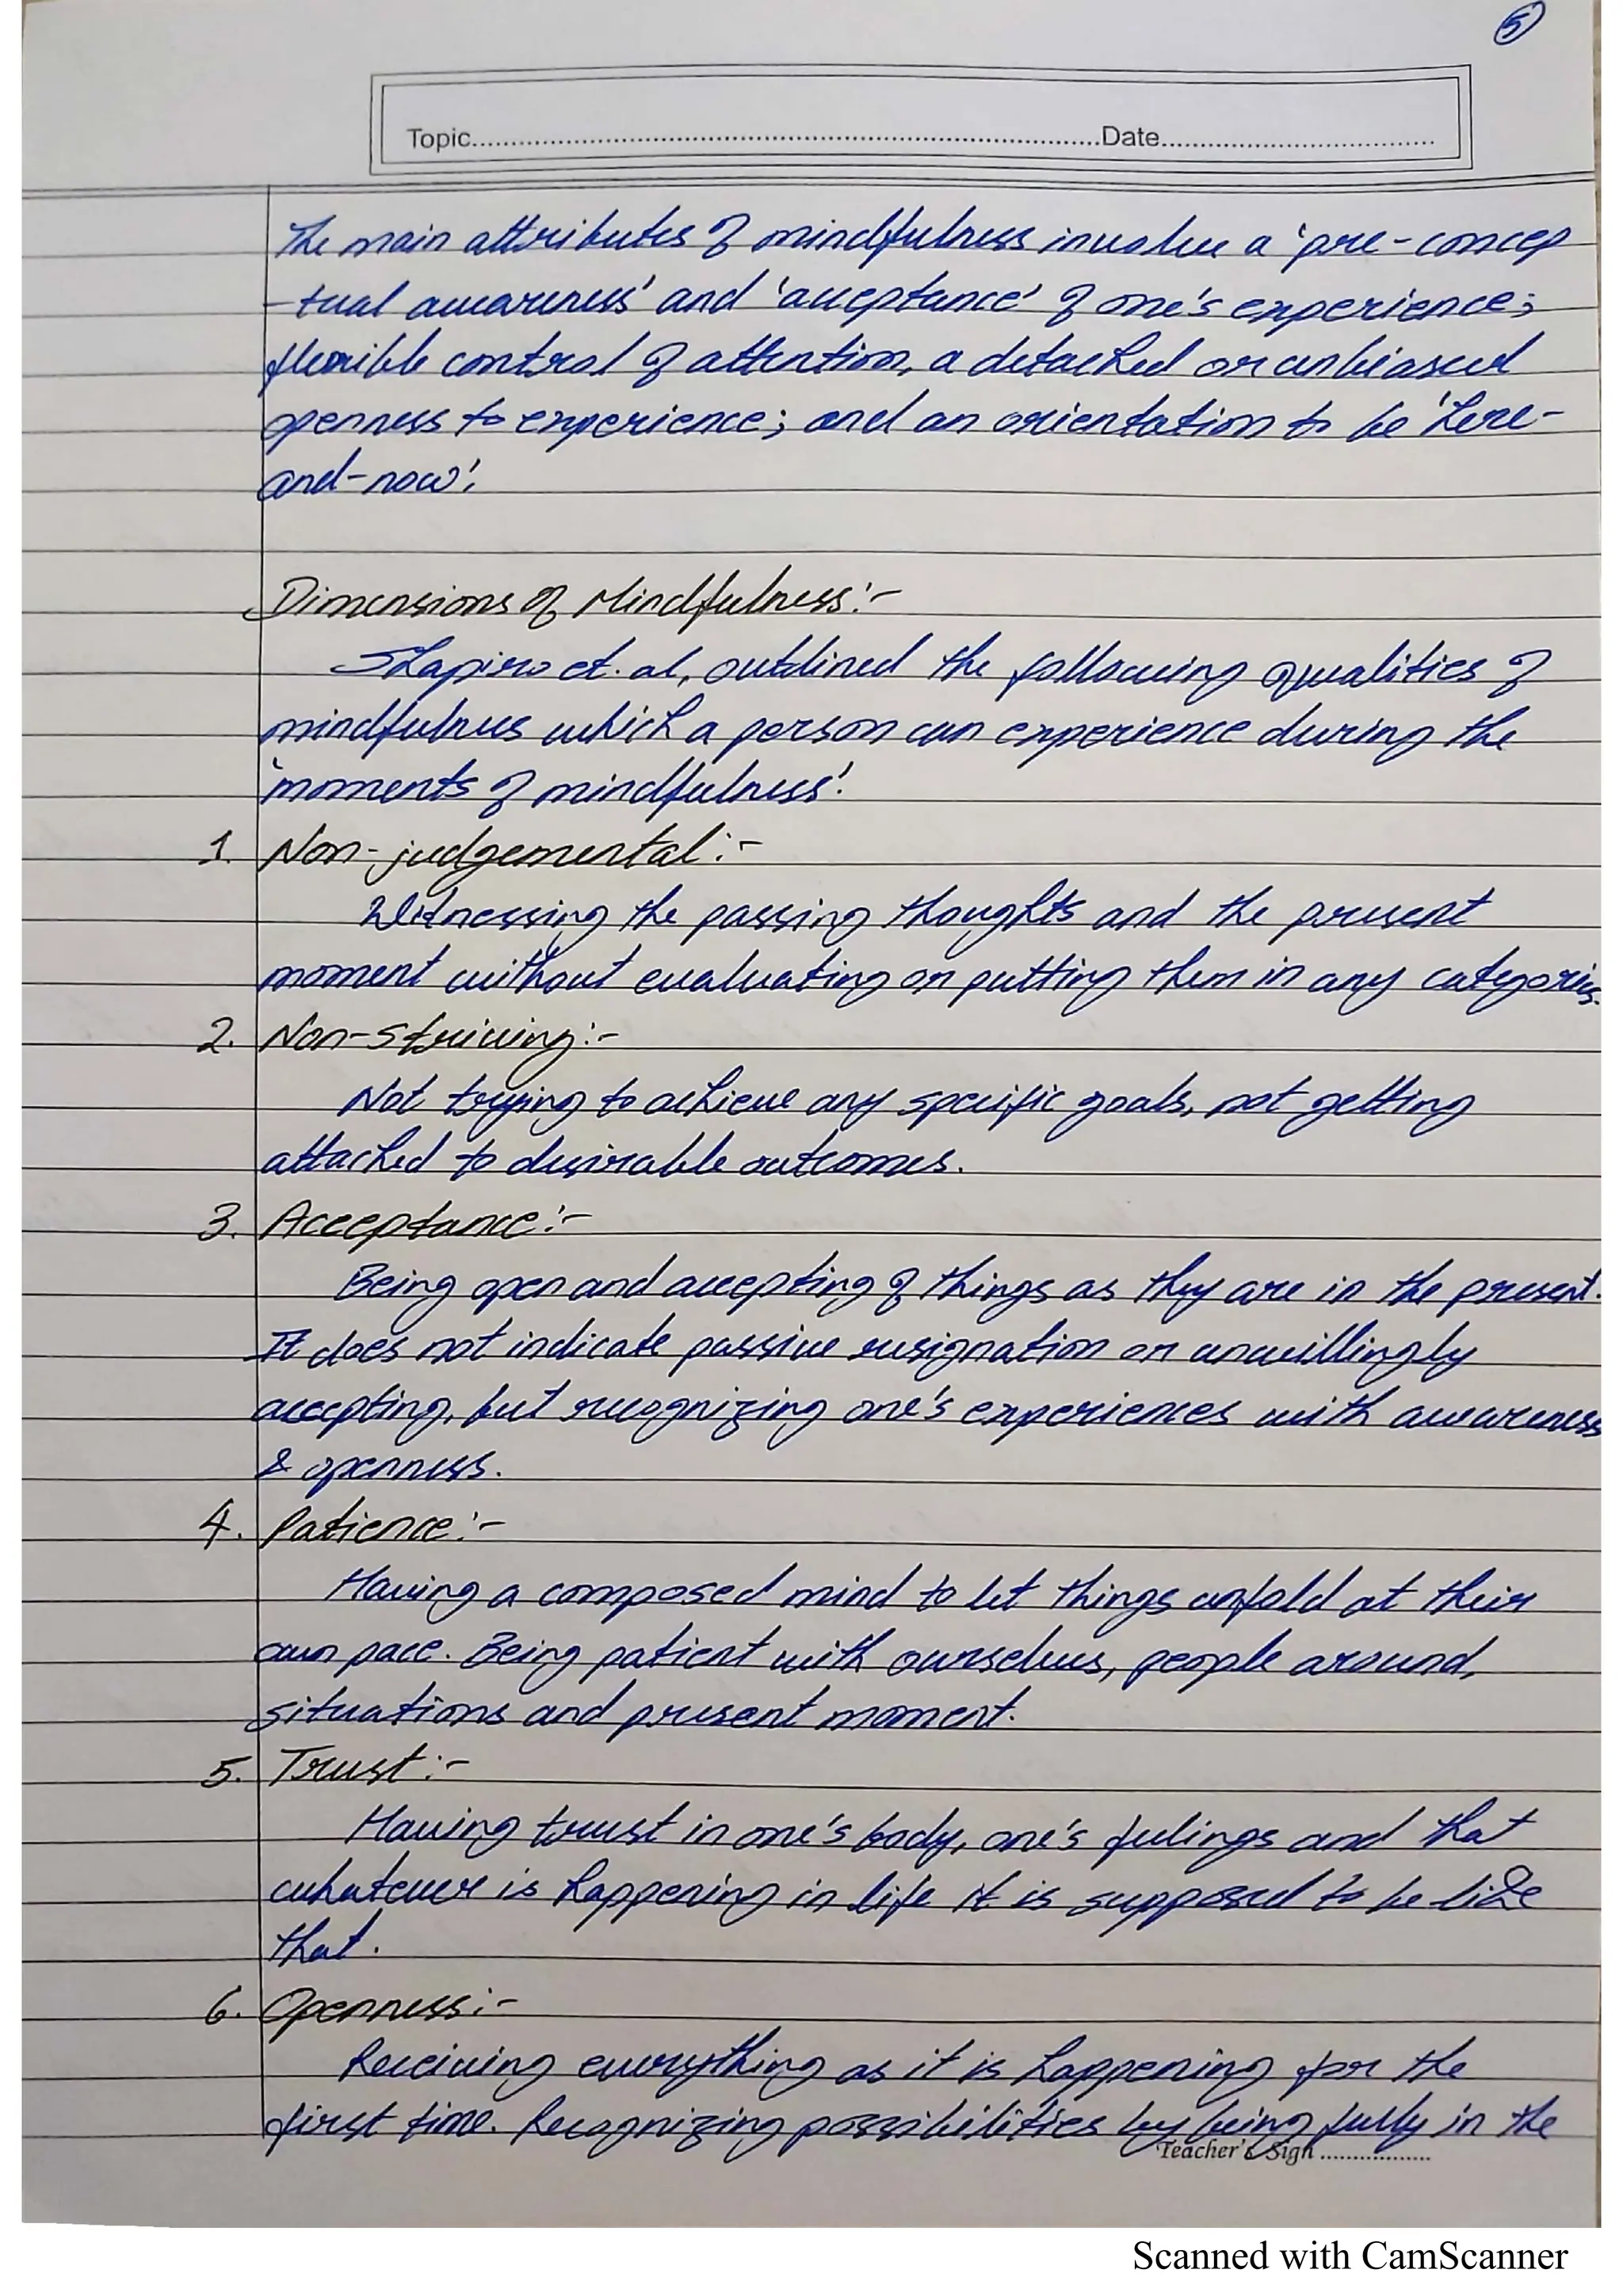 5
Topic..........Date..........
The main attributes of mindfulness involve a 'pre-concep
-tual awareness' and 'acceptance' of one's experience;
flexible control of attention, a detached or unbiased
openness to experience; and an orientation to be 'here-
and-now'.
Dimensions of Mindfulness:-
Shapiro et. al, outlined the following qualities of
mindfulness which a person can experience during the
'moments of mindfulness'.
1. Non-judgemental:-
Witnessing the passing thoughts and the present
moment without evaluating or putting them in any categories.
2. Non-striving:-
Not trying to achieve any specific goals, not getting
attached to desirable outcomes.
3. Acceptance:-
Being open and accepting of things as they are in the present.
It does not indicate passive resignation or unwillingly
accepting, but recognizing one's experiences with awareness
& openness.
4. Patience:-
Having a composed mind to let things unfold at their
own pace. Being patient with ourselves, people around,
situations and present moment.
5. Trust:-
Having trust in one's body, one's feelings and that
whatever is happening in life it is supposed to be like
that.
6. Openness:-
Receiving everything as it is happening for the
first time. Recognizing possibilities by being fully in the
Teacher's Sign ..........
Scanned with CamScanner